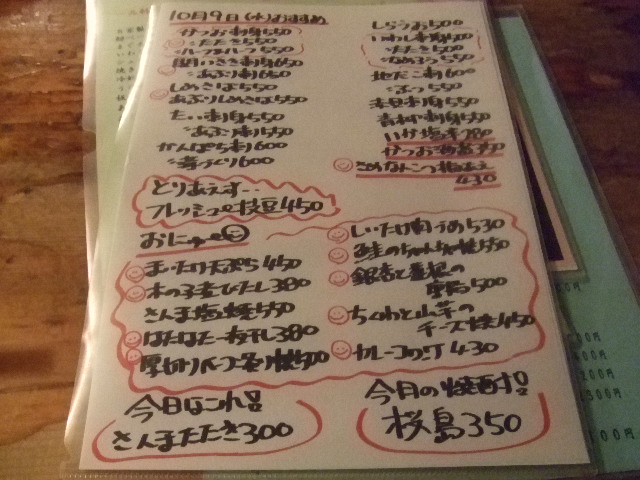 10月9日(水)おすすめ
かつお刺身550
〃たたき550
関いさき刺身650
〃あぶり刺650
しめさば550
あぶりしめさば550
たい刺身550
〃あぶり刺550
かんぱち刺600
〃薄づくり600
しらうお500
いわし刺身550
〃たたき500
〃なめろう550
地だこ刺600
〃ぶつ550
赤貝刺身550
青柳刺身550
いか塩辛380
かつお酒盗350
さめなんこつ梅あえ
430
とりあえず‥
フレッシュ枝豆450
おにゅ〜
まいたけ天ぷら450
木の子煮びたし380
さんま塩焼550
はたはた一夜干し380
厚切りベーコン
500
しいたけ肉づめ530
鮭のちゃんちゃん焼550
銀杏と
500
ちくわと山芋の
チーズ焼450
カレーコロッケ430
今日はこれ!!
さんまたたき300
今月の焼酎!!
桜島350